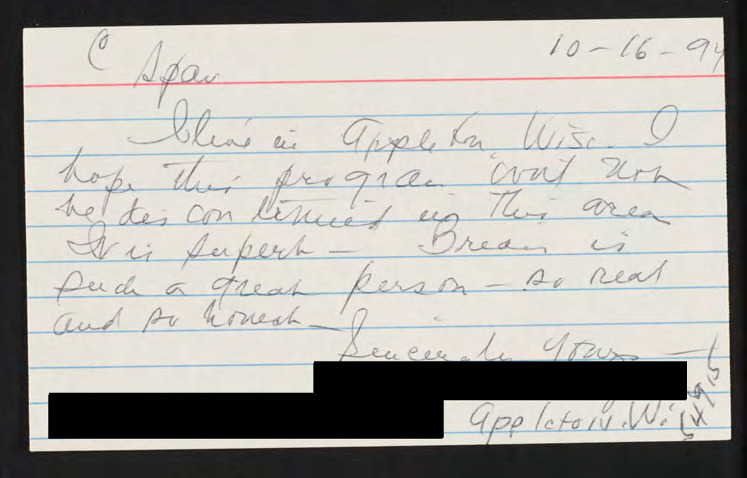 C 10-16-94
Span
I live in Appleton, Wisc. I
hope this program
be discontinued in this area
It is superb — Brian is
such a great person — so real
and so honest —
Sincerely Yours —
Appleton, Wi.
54915